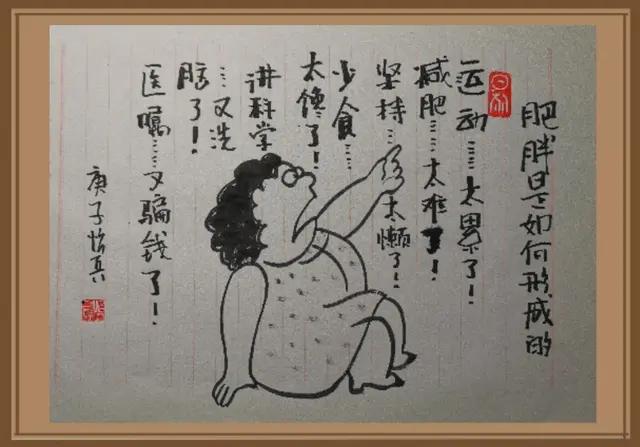 肥胖是如何形成的
运动……太累了！
减肥……太难了！
坚持……太懒了！
少食……
太馋了！
讲科学
……又洗
脑了！
医嘱……又骗钱了！
庚子怡真